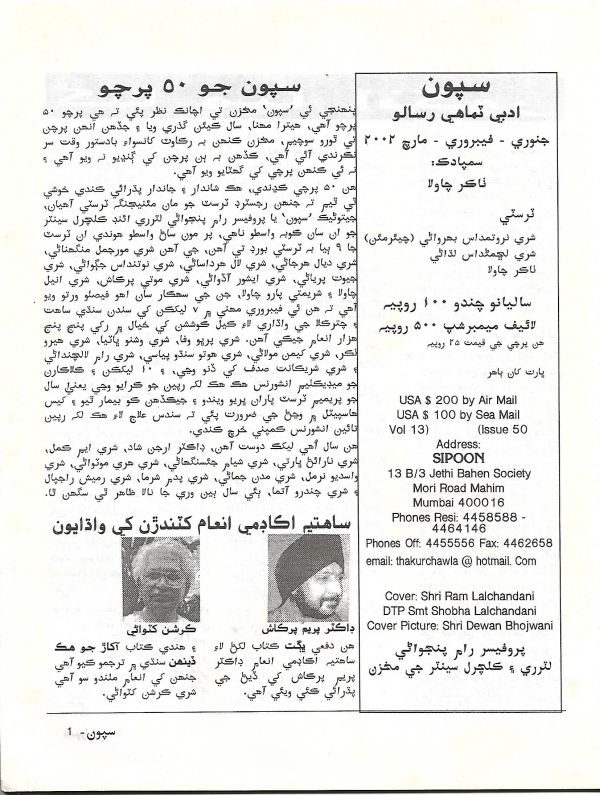 سپون
ادبي ٽماهي رسالو
جنوري - فيبروري - مارچ ٢٠٠٢
سمپادڪ:
ٺاڪر چاولا
ٽرسٽي
شري نروتمداس بهرواڻي (چيئرمئن)
شري لڇمڻداس لڌاڻي
ٺاڪر چاولا
ساليانو چندو ١٠٠ روپيہ
لائيف ميمبرشپ ٥٠٠ روپيہ
هن پرچي جي قيمت ٢٥ روپيہ
ڀارت کان ٻاهر
USA $ 200 by Air Mail
USA $ 100 by Sea Mail
Vol 13) (Issue 50
Address:
SIPOON
13 B/3 Jethi Bahen Society
Mori Road Mahim
Mumbai 400016
Phones Resi: 4458588 -
4464146
Phones Off: 4455556 Fax: 4462658
email: thakurchawla @ hotmail. Com
Cover: Shri Ram Lalchandani
DTP Smt Shobha Lalchandani
Cover Picture: Shri Dewan Bhojwani
پروفيسر رام پنجواڻي
لٽرري ۽ ڪلچرل سينٽر جي مخزن
سپون جو ٥٠ پرچو
پنهنجي ئي ’سپون‘ مخزن تي اچانڪ نظر پئي تہ هي پرچو ٥٠
پرچو آهي، هيترا مهنا، سال ڪيئن گذري ويا ۽ جڏهن انهن پرچن
تي ٿورو سوچيم، مخزن ڪنهن بہ رڪاوٽ کانسواءِ بادستور وقت سر
نڪرندي آئي آهي، ڪڏهن بہ ٻن پرچن کي ڳنڍيو نہ ويو آهي ۽
نہ ئي ڪنهن پرچي کي گھٽايو ويو آهي.
هن ٥٠ پرچي ڪڍندي، هڪ شاندار ۽ جاندار پڌرائي ڪندي خوشي
ٿي ٿيم تہ جنهن رجسٽرڊ ٽرسٽ جو مان مئنيجنگ ٽرسٽي آهيان،
جيتوڻيڪ ’سپون‘ يا پروفيسر رام پنجواڻي لٽرري ائنڊ ڪلچرل سينٽر
جو ان سان ڪوبہ واسطو ناهي، پر مون ساڻ واسطو هوندي ان ٽرسٽ
جا ٩ ٻيا بہ ٽرسٽي بورڊ تي آهن، جي آهن شري مورجمل منگھناڻي،
شري ديال هرجاڻي، شري لال هرداساڻي، شري نوتنداس جڳواڻي، شري
جيوت پرياڻي، شري ايشور آڏواڻي، شري موتي پرڪاش، شري انيل
چاولا ۽ شريمتي پارو چاولا، جن جي سهڪار سان اهو فيصلو ورتو ويو
آهي تہ هن ئي فيبروري مهني ۾ ٧ ليکڪن کي سندن سنڌي ساهت
۽ چترڪلا جي واڌاري لاءِ ڪيل ڪوششن کي خيال ۾ رکي پنج پنج
هزار انعام جيڪي آهن. شري پرڀو وفا، شري وشنو ڀاٽيا، شري هيرو
ٺڪر، شري کيمن مولاڻي، شري هوتو سنڌو پياسي، شري رام لالچنداڻي
۽ شري شريڪانت صدف کي ڏنو وڃي، ۽ ١٠ ليکڪن ۽ ڪلاڪارن
جو ميڊيڪليم انشورنس هڪ هڪ لک رپين جو ڪرايو وڃي يعني سال
جو پريميم ٽرسٽ پاران ڀريو ويندو ۽ جيڪڏهن ڪو بيمار ٿيو ۽ کيس
هاسپيٽل ۾ وڃڻ جي ضرورت پئي تہ سندس علاج لاءِ هڪ لک رپين
تائين انشورنس ڪمپني خرچ ڪندي.
هن سال اُهي ليکڪ دوست آهن، ڊاڪٽر ارجن شاد، شري ايم ڪمل،
شري نارائڻ ڀارتي، شري شيام جئسنگھاڻي، شري هري موٽواڻي، شري
واسديو نرمل، شري مدن جماڻي، شري پدم شرما، شري رميش راجپال
۽ شري چندرو آتما، ٻئي سال ٻين وري جا نالا ظاهر ٿي سگھن ٿا.
ساهتيہ اڪاڊمي انعام کٽندڙن کي واڌايون
ڊاڪٽر پريم پرڪاش
ڪرشن کٽواڻي
هن دفعي ڀڳت ڪتاب لکڻ لاءِ
ساهتيہ اڪاڊمي انعام ڊاڪٽر
پريم پرڪاش کي ڏيڻ جي
پڌرائي ڪئي ويئي آهي.
۽ هندي ڪتاب آڪاڙ جو هڪ
ڏينهن سنڌي ۾ ترجمو ڪيو آهي
جنهن کي انعام ملندو سو آهي
شري ڪرشن کٽواڻي.
سپون - 1